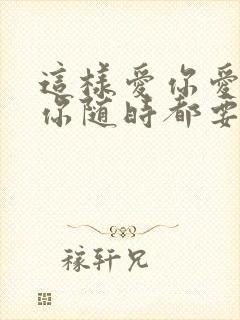 這樣愛你愛
你随時都要
稼轩兄